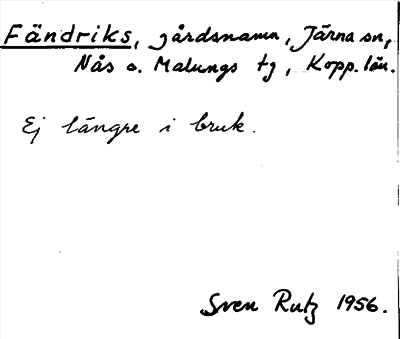 Fändriks, gårdsnamn, Järna sn,
Nås o. Malungs tg, Kopp. län.
Ej längre i bruk.
Sven Rutz 1956.